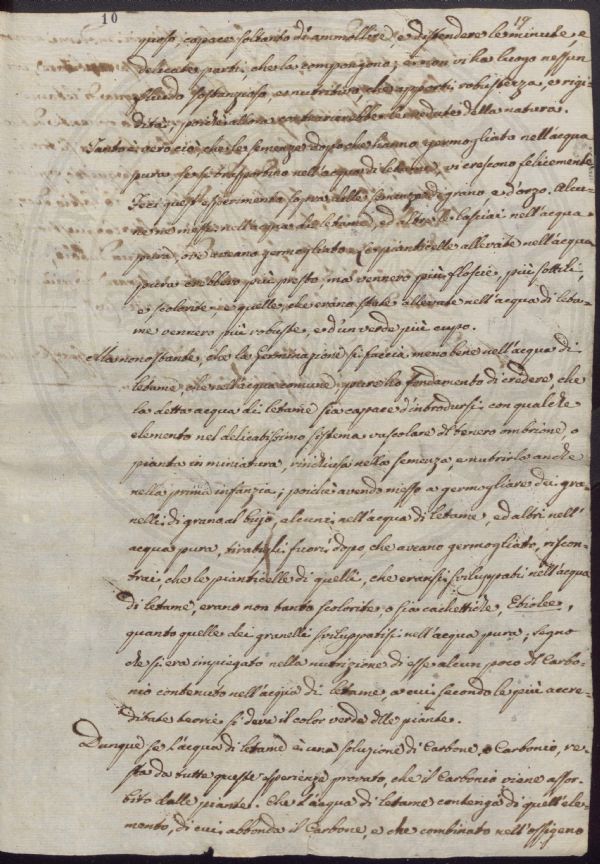 10
19
quoso, capace soltanto di ammollire e distendere le minute, e
delicate parti, che la compongono; e non vi ha luogo nessun
fluido sostanzioso, e nutritivo, che apporti robustezza, e rigi-
dità, poichè allora contrariarebbe le vedute della natura.
Tanto è vero ciò, che se le semenze dopo che hanno germogliato nell'acqua
pura, se si trasportino nell'acqua di letame, vi crescono felicemente.
Feci quest'esperimento sopra delle semenze di grano, e d'orzo. Alcu-
ne ne messi nell'acqua di letame, ed altre le lasciai nell'acqua
pura, ove aveano germogliato. Le pianticelle allevate nell'acqua
pura crebbero più presto, ma vennero più floscie, più sottili,
e scolorite, e quelle, che erano state allevate nell'acqua di leta-
me vennero più robuste, e d'un verde più cupo.
Ma nonostante, che la Germinazione si faccia meno bene nell'acqua di
letame, che nell'acqua comune, pure ho fondamento di credere, che
la detta acqua di letame sia capace d'introdursi con qualche
elemento nel delicatissimo sistema vascolare del tenero embrione, o
pianta in miniatura, rinchiusa nella semenza, e nutrirla anche
nella prima infanzia; poichè avendo messo a germogliare dei gra-
nelli di grano al bujo, alcuni nell'acqua di letame, ed altri nell'
acqua pura, tiratigli fuori dopo, che aveano germogliato, riscon-
trai, che le pianticelle di quelli, che eransi sviluppati nell'acqua
di letame, erano non tanto scolorite, o sia cachettiche, Etiolee,
quanto quelle dei granelli sviluppatisi nell'acqua pura; segno
che si era impiegato nella nutrizione di esse alcun poco del Carbo-
nio contenuto nell'acqua di letame, a cui secondo le più accre-
ditate teorie si deve il color verde delle piante.
Dunque se l'acqua di letame è una soluzione di Carbone, o Carbonio, re-
sta da tutte queste esperienze provato, che il Carbonio viene assor-
bito dalle piante. Che l'acqua di letame contenga di quell'ele-
mento, di cui abbonda il Carbone, e che combinato nell'ossigeno